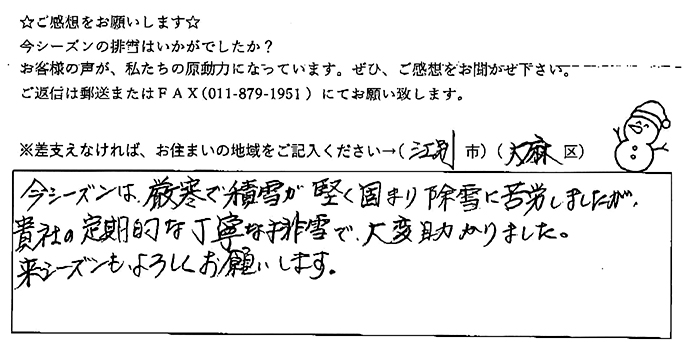 ☆ご感想をお願いします☆
今シーズンの排雪はいかがでしたか？
お客様の声が、私たちの原動力になっています。ぜひ、ご感想をお聞かせ下さい。
ご返信は郵送またはＦＡＸ(011-879-1951)にてお願い致します。
※差支えなければ、お住まいの地域をご記入ください→(江別 市)(大麻 区)
今シーズンは、厳寒で積雪が堅く固まり除雪に苦労しましたが、
貴社の定期的な丁寧な排雪で、大変助かりました。
来シーズンも、よろしくお願いします。